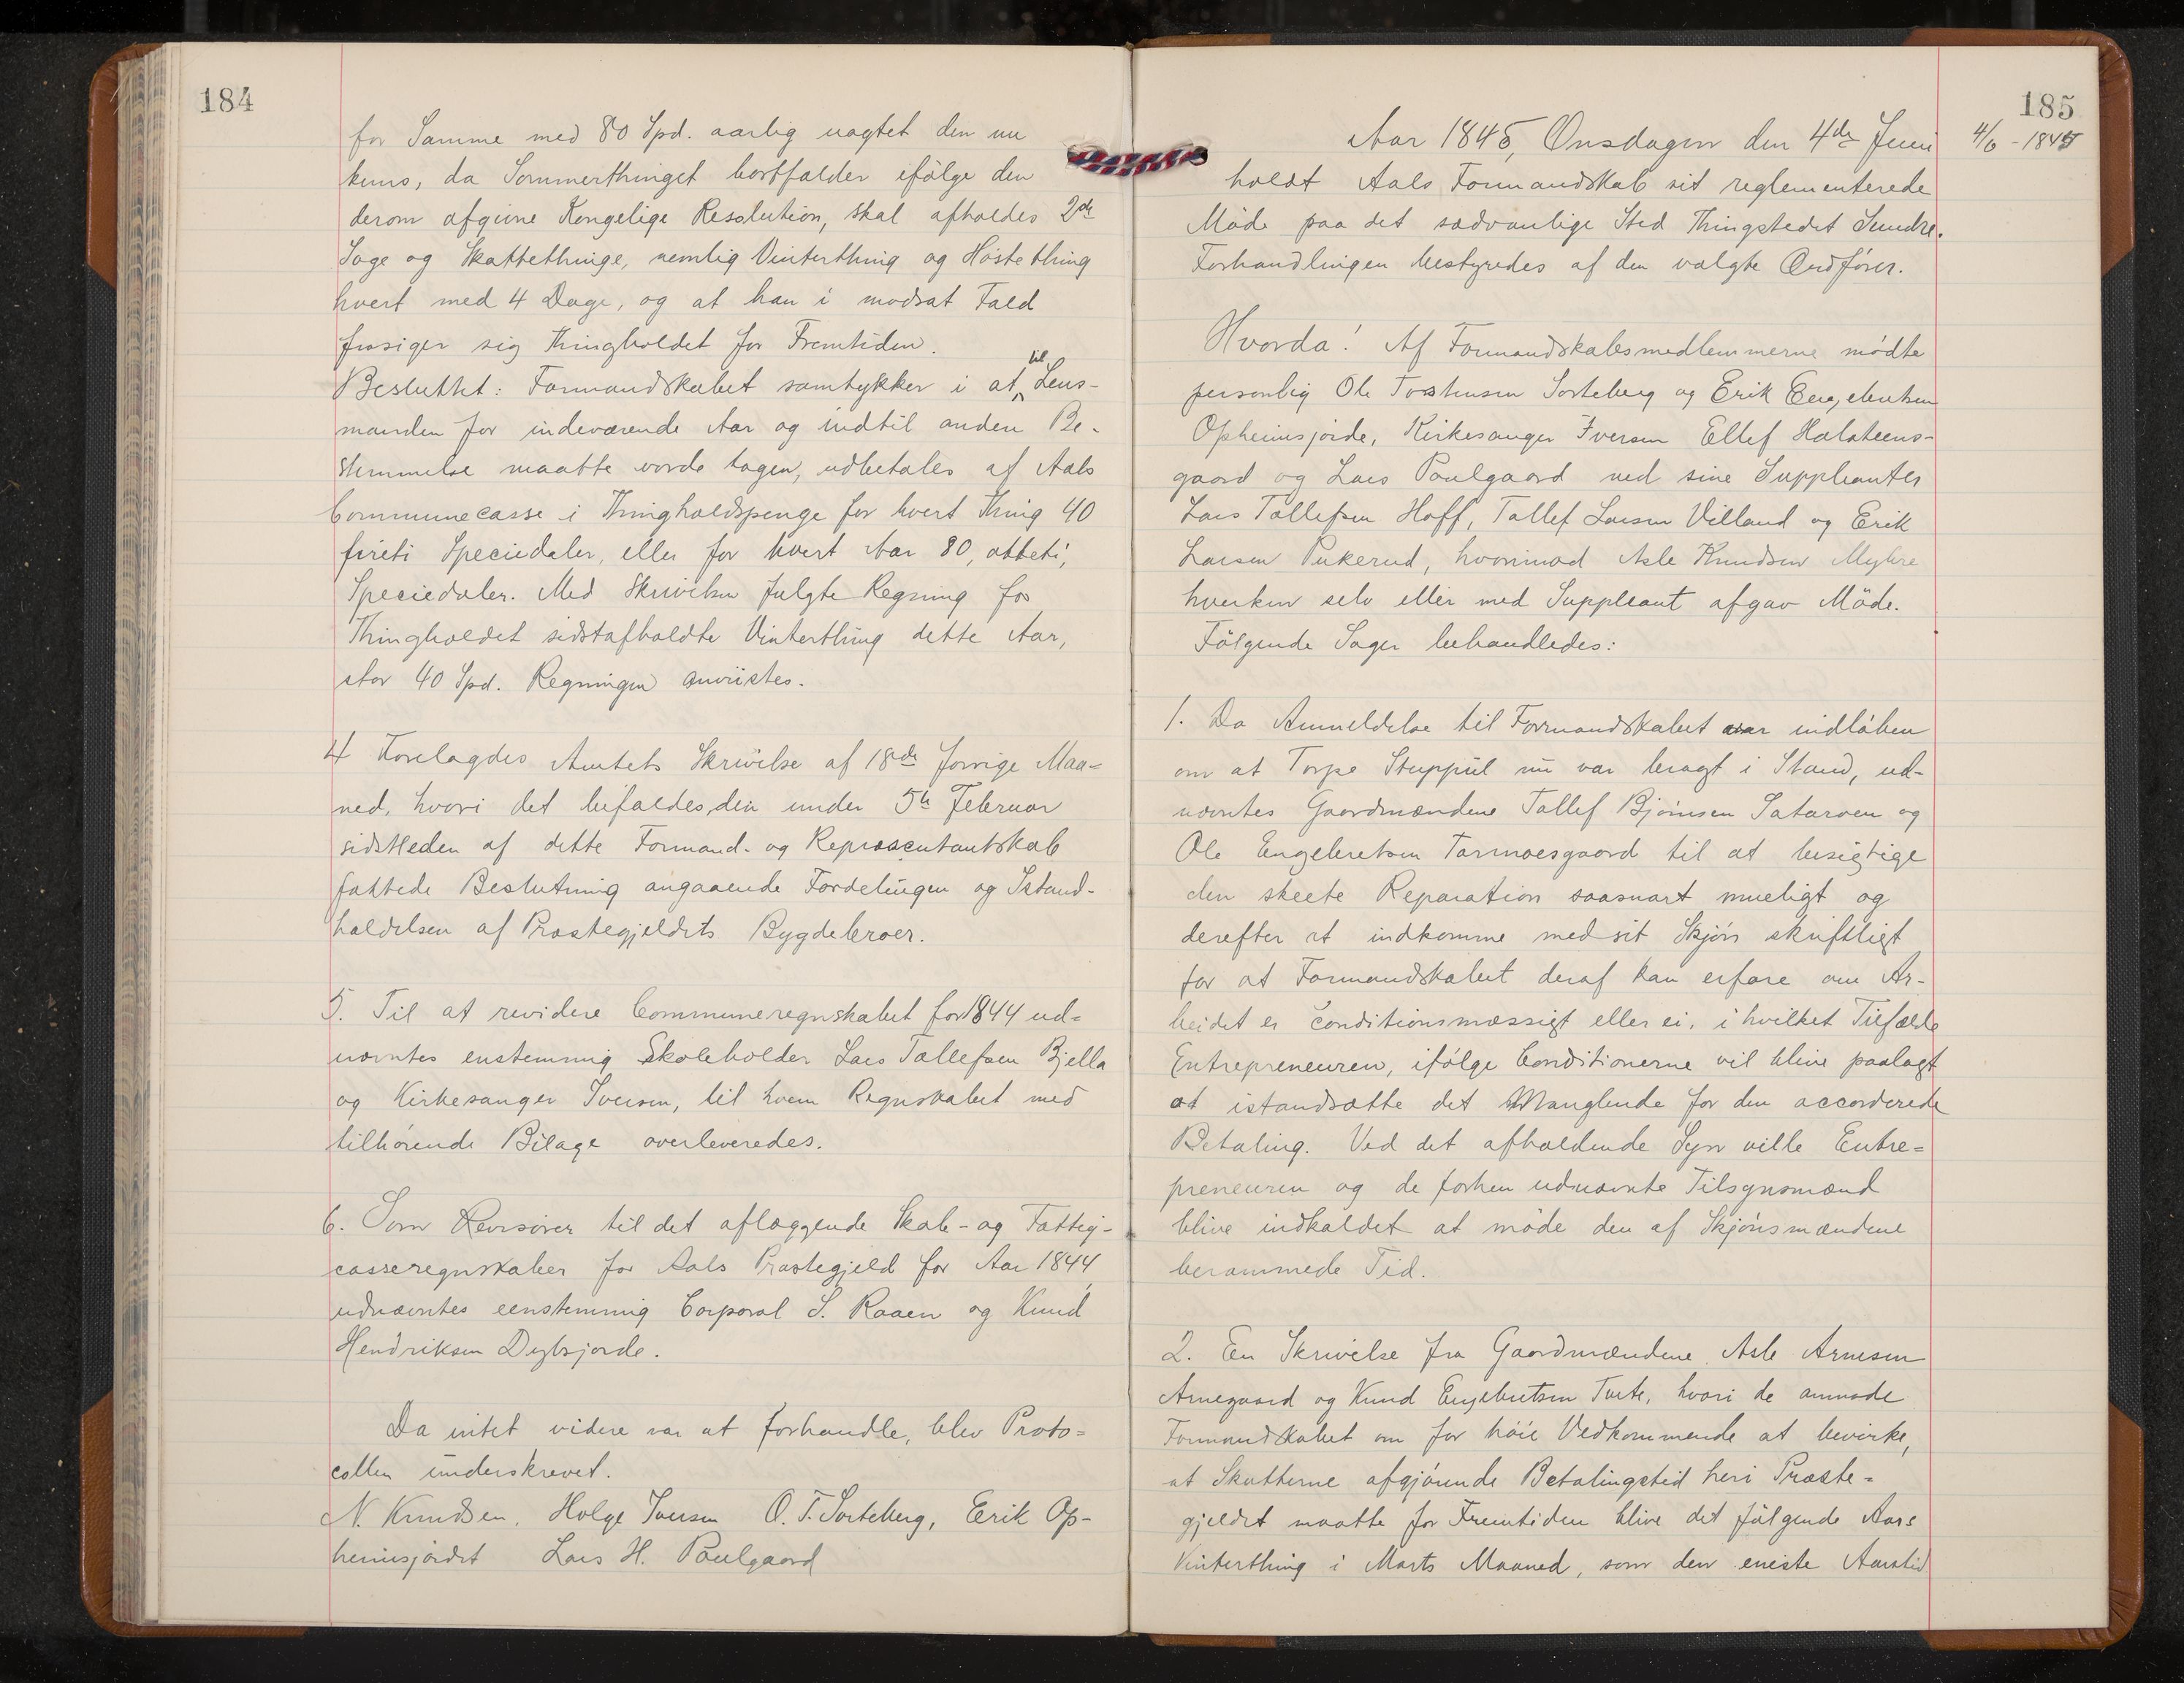 184
for Samme med 80 Spd. aarlig uagtet den nu
kuns, da Sommerthinget bortfalder ifølge den
derom afgivne Kongelige Resolution, skal afholdes 2de
Sage og Skattethinge, nemlig Vinterthing og Høstething
hvert med 4 Dage, og at han i modsat Fald
frasiger sig Thingholdet for Fremtiden.
Besluttet: Formandskabet samtykker i at til Lens-
manden for indeværende Aar og indtil anden Be-
stemmelse maatte vorde tagen, udbetales af Aals
Communecasse i Thingholdspenge for hvert Thing 40
fireti Speciedaler, eller for hvert Aar 80, otteti,
Speciedaler. Med Skrivelsen fulgte Regning for
Thingholdet sidstafholdte Vinterthing dette Aar,
stor 40 Spd. Regningen anviistes.
4 Forelagdes Amtets Skrivelse af 18de forrige Maa=
ned, hvori det bifaldes, den under 5te Februar
sidstleden af dette Formand- og Repræsentantskab
fattede Beslutning angaaende Fordelingen og Istand-
holdelsen af Præstegjeldets Bygdebroer.
5. Til at revidere Communeregnskabet for 1844 ud=
nævntes enstemmig Skoleholder Lars Tollefsen Bjella
og Kirkesanger Iversen, til hvem Regnskabet med
tilhørende Bilage overleveredes.
6. Som Revisorer til det aflæggende Skole- og Fattig-
casseregnskaber for Aals Præstegjeld for Aar 1844
udnævntes eenstemmig Corporal S. Raaen og Knud
Hendriksen Dybsjorde.
Da intet videre var at forhandle, blev Proto=
collen underskrevet.
N. Knudsen. Holge Iversen O. T. Sorteberg, Eerik Op-
heimsjordet Lars H. Poulgaard
185
4/6 - 1845
Aar 1845, Onsdagen den 4de Juni
holdt Aals Formandskab sit reglementerede
Møde paa det sædvanlige Sted Thingstedet Sundre.
Forhandlingen bestyredes af den valgte Ordfører.
Hvorda! Af Formandskabsmedlemmerne mødte
personlig Ole Tostensen Sorteberg og Erik Engebretsen
Opheimsjorde, Kirkesanger Iversen Ellef Holsteens-
gaard og Lars Poulgaard ved sine Suppleanter
Lars Tollefsen Hoff, Tollef Larsen Villand og Erik
Larsen Pukerud, hvorimod Asle Knudsen Myhre
hverken selv eller med Suppleant afgav Møde.
Følgende Sager behandledes:
1. Da Anmeldelse til Formandskabet var indløben
om at Torpe Stuppul nu var bragt i Stand, ud-
nævntes Gaardmændene Tollef Bjørnsen Sataroen og
Ole Engebretsen Tormoesgaard til at besigtige
den skeete Reparation saasnart mueligt og
derefter at indkomme med sit Skjøn skriftligt
for at Formandskabet deraf kan erfare om Ar-
beidet er conditionsmæssigt eller ei, i hvilket Tilfælde
Entrepreneuren, ifølge Conditionerne vil blive paalagt
at istandsætte det Manglende for den accorderede
Betaling. Ved det afholdende Syn ville Entre=
preneuren og de forhen udnævnte Tilsynsmænd
blive indkaldet at møde den af Skjønsmændene
berammede Tid.
2. En Skrivelse fra Gaardmændene Asle Arnesen
Arnegaard og Knud Engebretsen Tufte, hvori de anmode
Formandskabet om for høie Vedkommende at bevirke,
at Skatterne afgjørende Betalingstid heri Præste=
gjeldet maatte for Fremtiden blive det følgende Aars
Vinterthing i Marts Maaned, som den eneste Aarstid